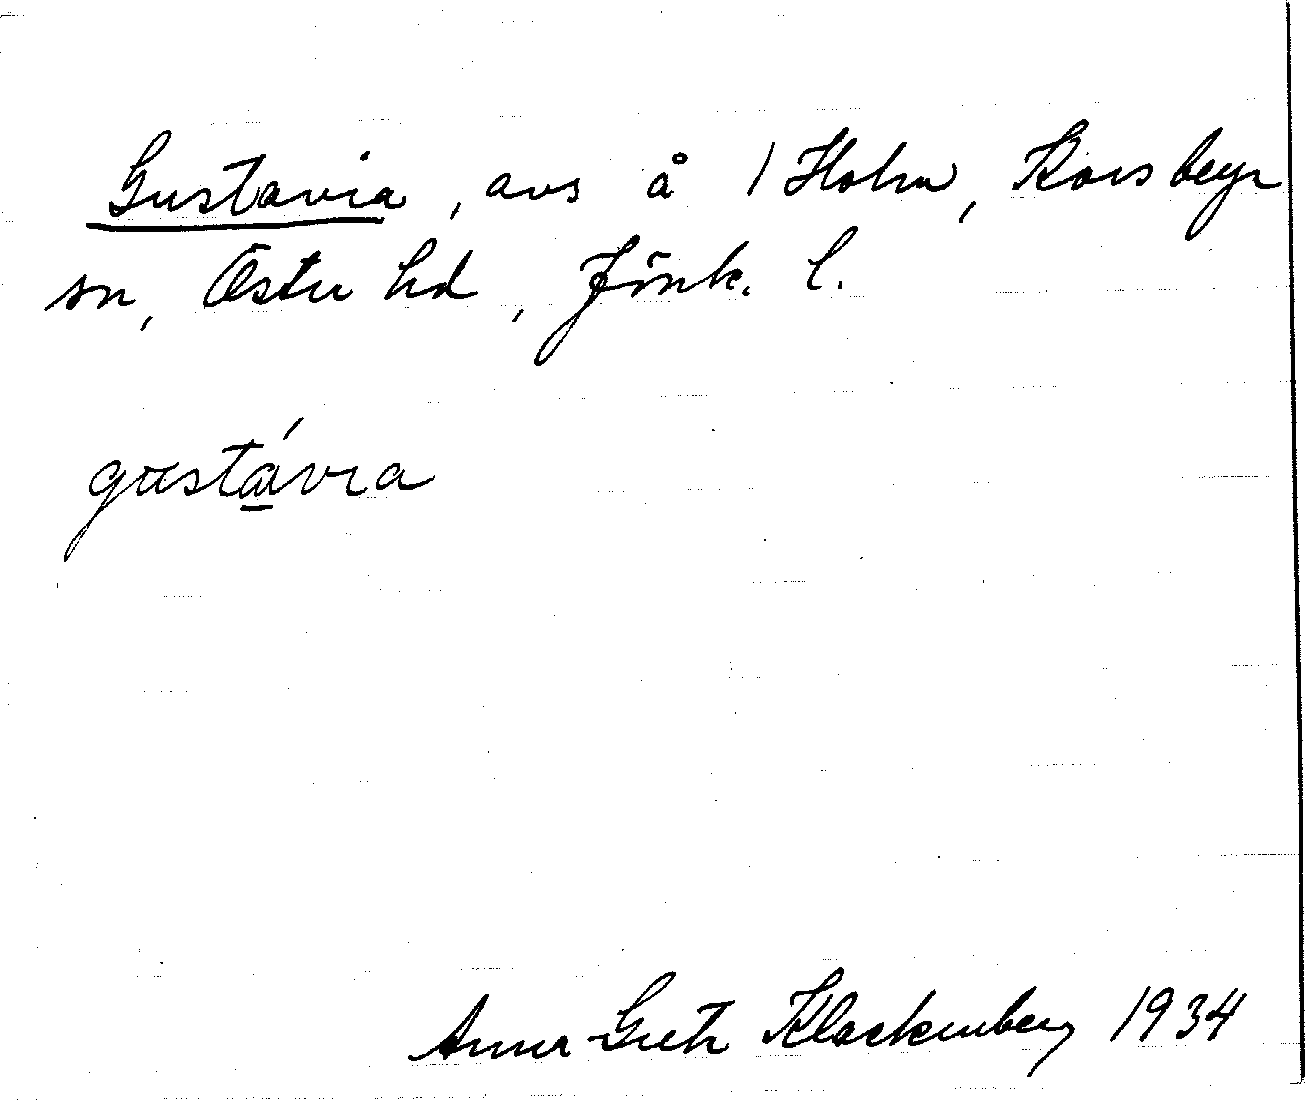 Gustavia, avs å 1 Holm, Korsberga
sn, Östra hd, Jönk. l.
gustávia
Anna-Greta Klackenberg 1934